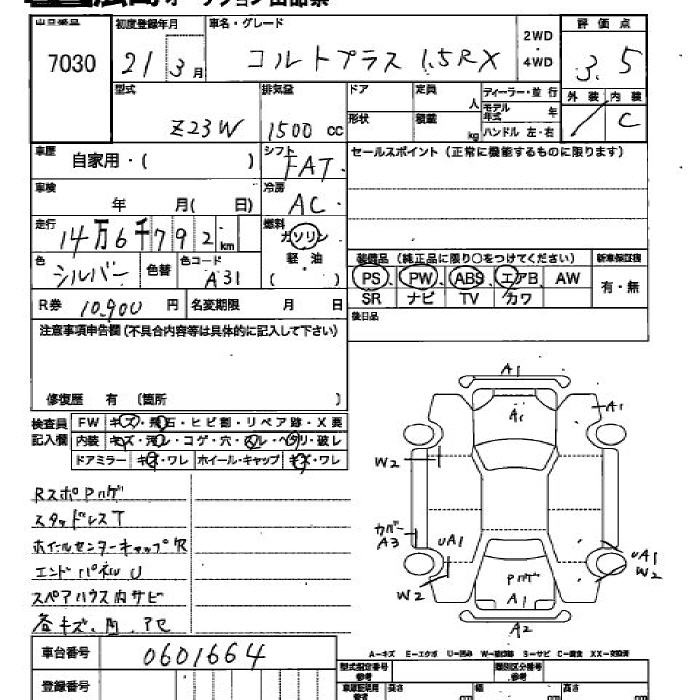 広島オークション出品票
出品番号 初度登録年月 車名・グレード 2WD 評価点
7030 21 3月 コルトプラス 1.5RX 4WD 3.5
型式 排気量 ドア 定員 人 ディーラー・並行 外装 内装
Z23W 1500 cc 形状 積載 kg モデル年式 年 / C
ハンドル 左・右
車歴 自家用・( ) シフト FAT セールスポイント(正常に機能するものに限ります)
車検 年 月( 日) 冷房 AC
走行 14万6千792km 燃料 ガソリン
色 シルバー 色替 色コード A31 軽油 ( )
装備品(純正品に限り○をつけてください) 新車保証書
PS、PW、ABS、エアB、AW 有・無
SR ナビ TV カワ
R券 10,900 円 名変期限 月 日 後日品
注意事項申告欄(不具合内容等は具体的に記入して下さい)
修復歴 有 〔箇所 〕
検査員記入欄 FW キズ・飛石・ヒビ割・リペア跡・X要
内装 キズ・汚レ・コゲ・穴・スレ・ヘタリ・破レ
ドアミラー キズ・ワレ ホイール・キャップ キズ・ワレ
RスポPハゲ
スタッドレスT
ホイールセンターキャップ欠
エンドパネルU
スペアハウス内サビ
各キズ、凹、アセ
A1
A1
A1
W2
カバー
A3
UA1
W2
UA1
W2
Pハゲ
A1
A2
A-キズ E-エクボ U-凹み W-補修跡 S-サビ C-腐食 XX-交換済
車台番号 0601664
登録番号
型式指定番号 参考 類別区分番号 参考
車庫証明用 参考 長さ cm 幅 cm 高さ cm